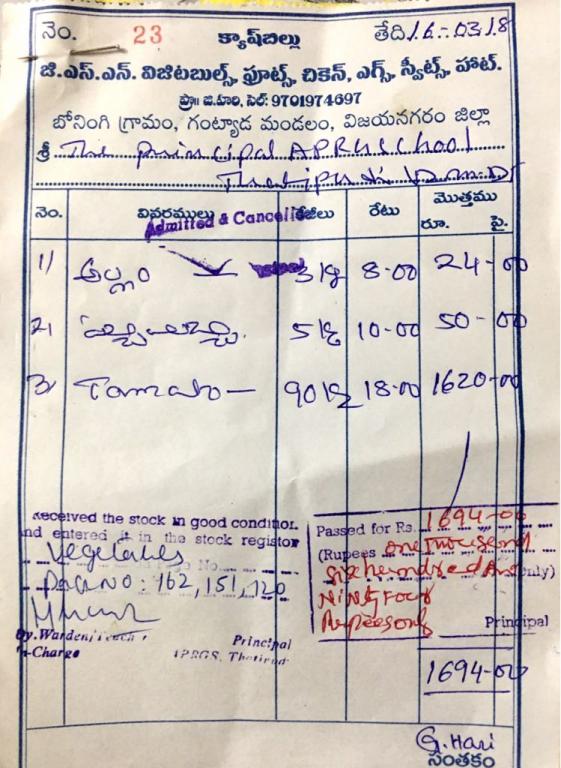 నెం. 23 క్యాష్‌బిల్లు తేది 16-03-18
జి.ఎస్.ఎన్. విజిటబుల్స్, ఫ్రూట్స్, చికెన్, ఎగ్స్, స్వీట్స్, హాట్.
ప్రొ॥ జి.హరి, సెల్: 9701974697
బోనింగి గ్రామం, గంట్యాడ మండలం, విజయనగరం జిల్లా
శ్రీ The principal APRUSchool
నెం. వివరములు కేజీలు రేటు మొత్తము
రూ. పై.
Admitted & Cancelled
1) అల్లం 3 kg 8-00 24-00
2) 5 kg 10-00 50-00
3) Tomato — 90 kg 18-00 1620-00
Received the stock in good condition.
and entered it in the stock register
Vegetables
Page No: 162, 151, 120
Dy.Warden/Teach
In-Charge
Principal
APRGS,
Passed for Rs. 1694-00
(Rupees one Thousand
six hundred And only)
Ninty Four
Rupees only
Principal
1694-00
G. Hari
సంతకం